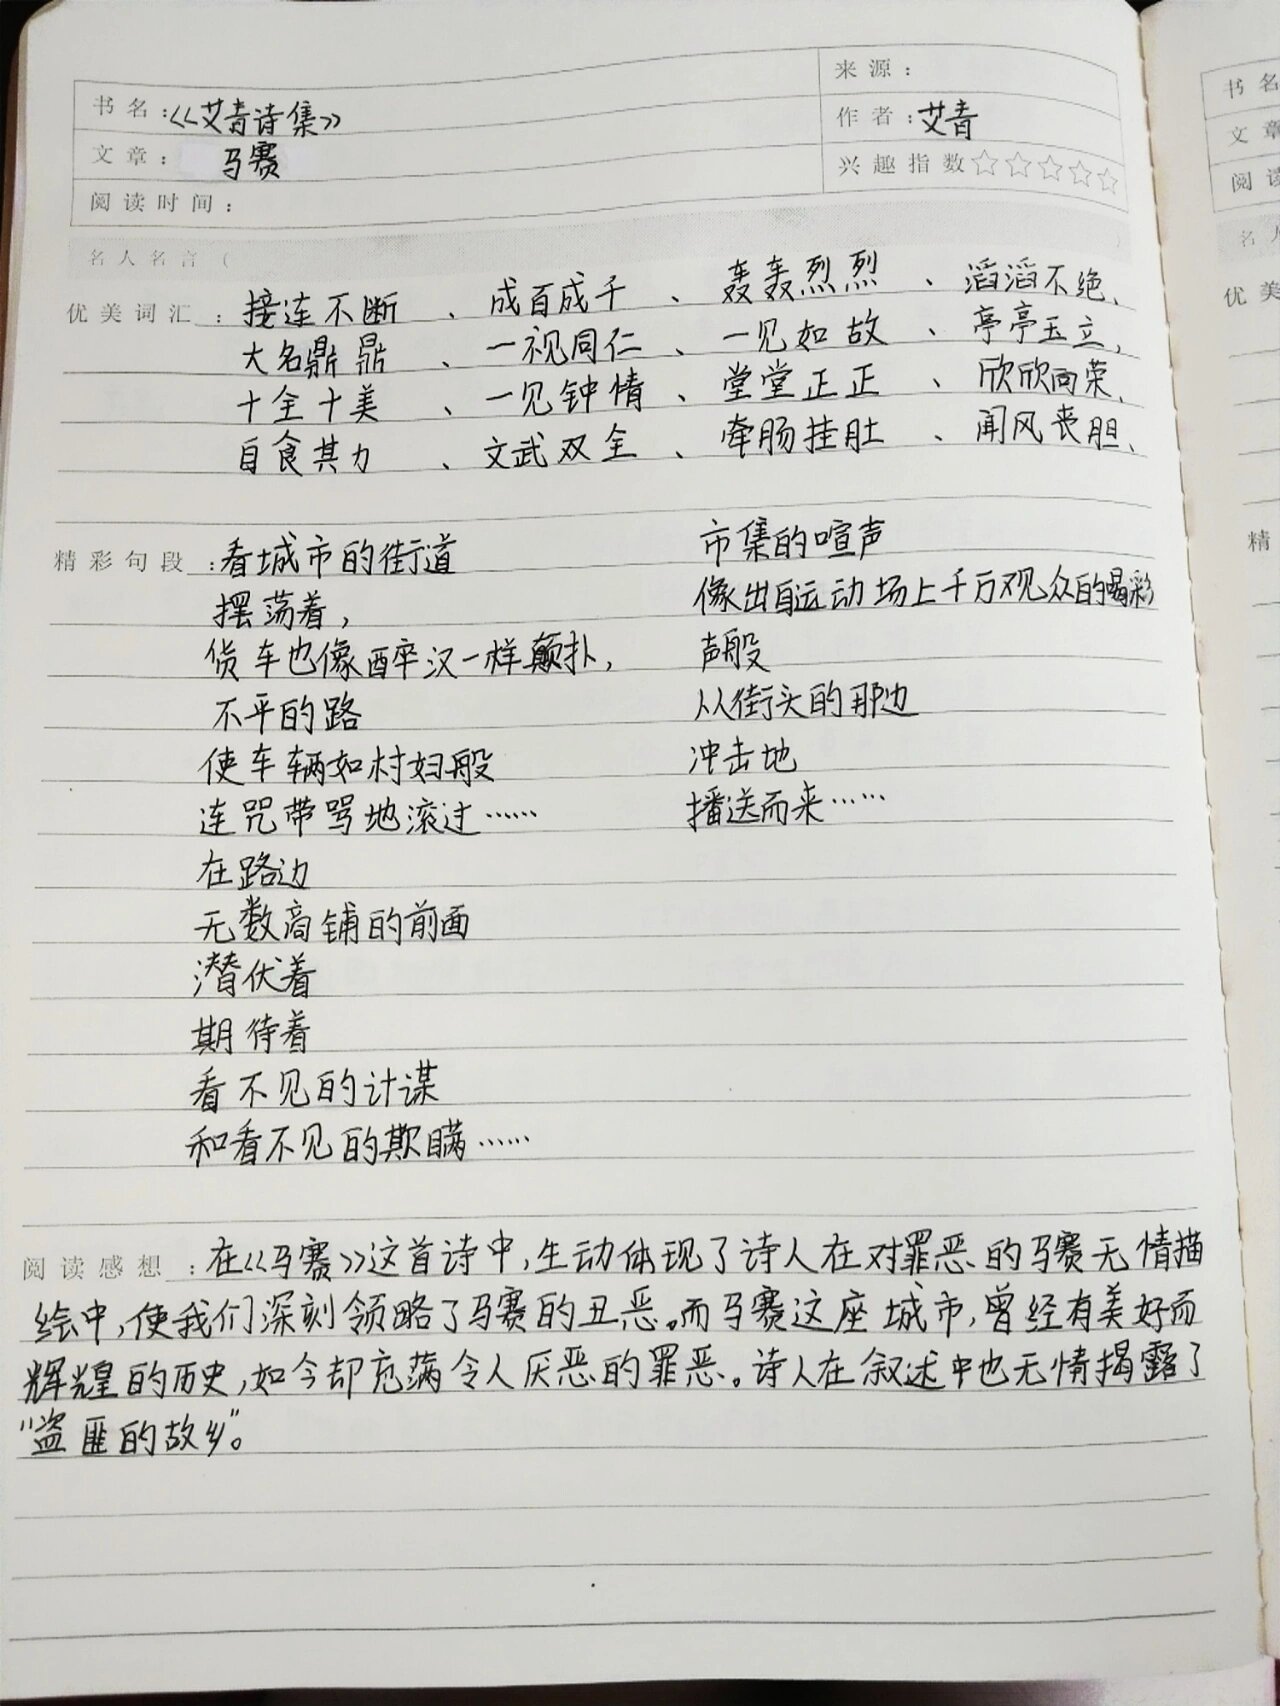 书名：《艾青诗集》
来源：
作者：艾青
文章：马赛
兴趣指数☆☆☆☆☆
阅读时间：
名人名言（
优美词汇：接连不断、成百成千、轰轰烈烈、滔滔不绝、
大名鼎鼎、一视同仁、一见如故、亭亭玉立、
十全十美、一见钟情、堂堂正正、欣欣向荣、
自食其力、文武双全、牵肠挂肚、闻风丧胆、
精彩句段：看城市的街道
摆荡着，
货车也像醉汉一样颠扑，
不平的路
使车辆如村妇般
连咒带骂地滚过……
在路边
无数商铺的前面
潜伏着
期待着
看不见的计谋
和看不见的欺瞒……
市集的喧声
像出自运动场上千万观众的喝彩
声般
从街头的那边
冲击地
播送而来……
阅读感想：在《马赛》这首诗中，生动体现了诗人在对罪恶的马赛无情描
绘中，使我们深刻领略了马赛的丑恶。而马赛这座城市，曾经有美好而
辉煌的历史，如今却充满令人厌恶的罪恶。诗人在叙述中也无情揭露了
“盗匪的故乡”。
书名
文章
阅读
名人
优美
精